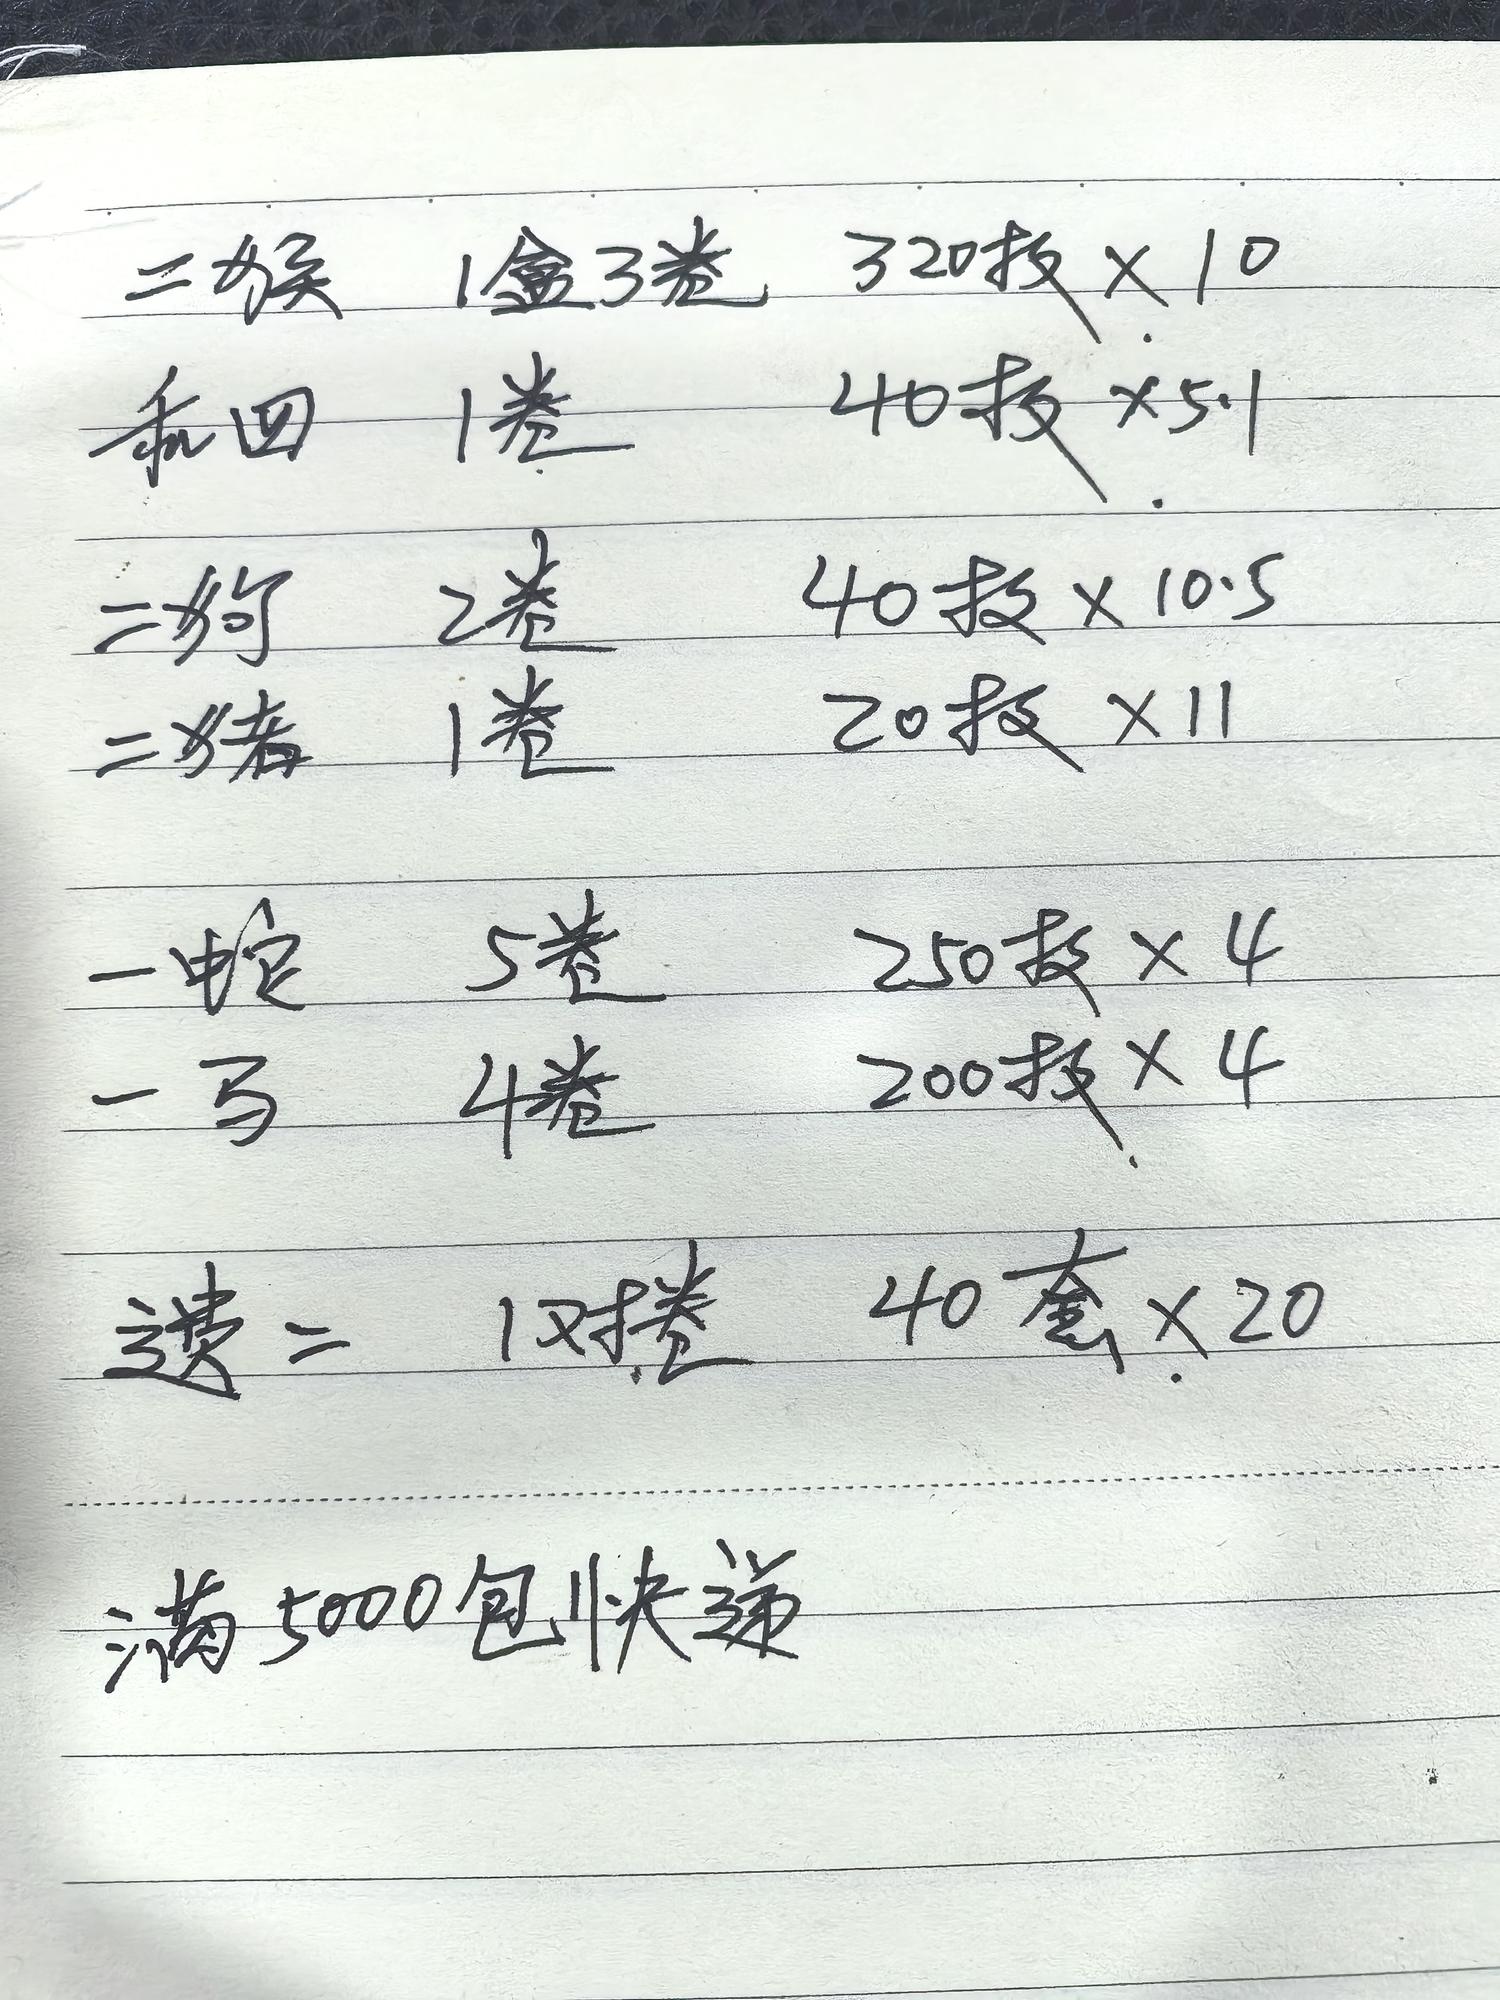 二猴 1盒3卷 320枚×10
和四 1卷 40枚×5.1
二狗 2卷 40枚×10.5
二猪 1卷 20枚×11
一蛇 5卷 250枚×4
一马 4卷 200枚×4
遗二 1对捲 40套×20
满5000包快递